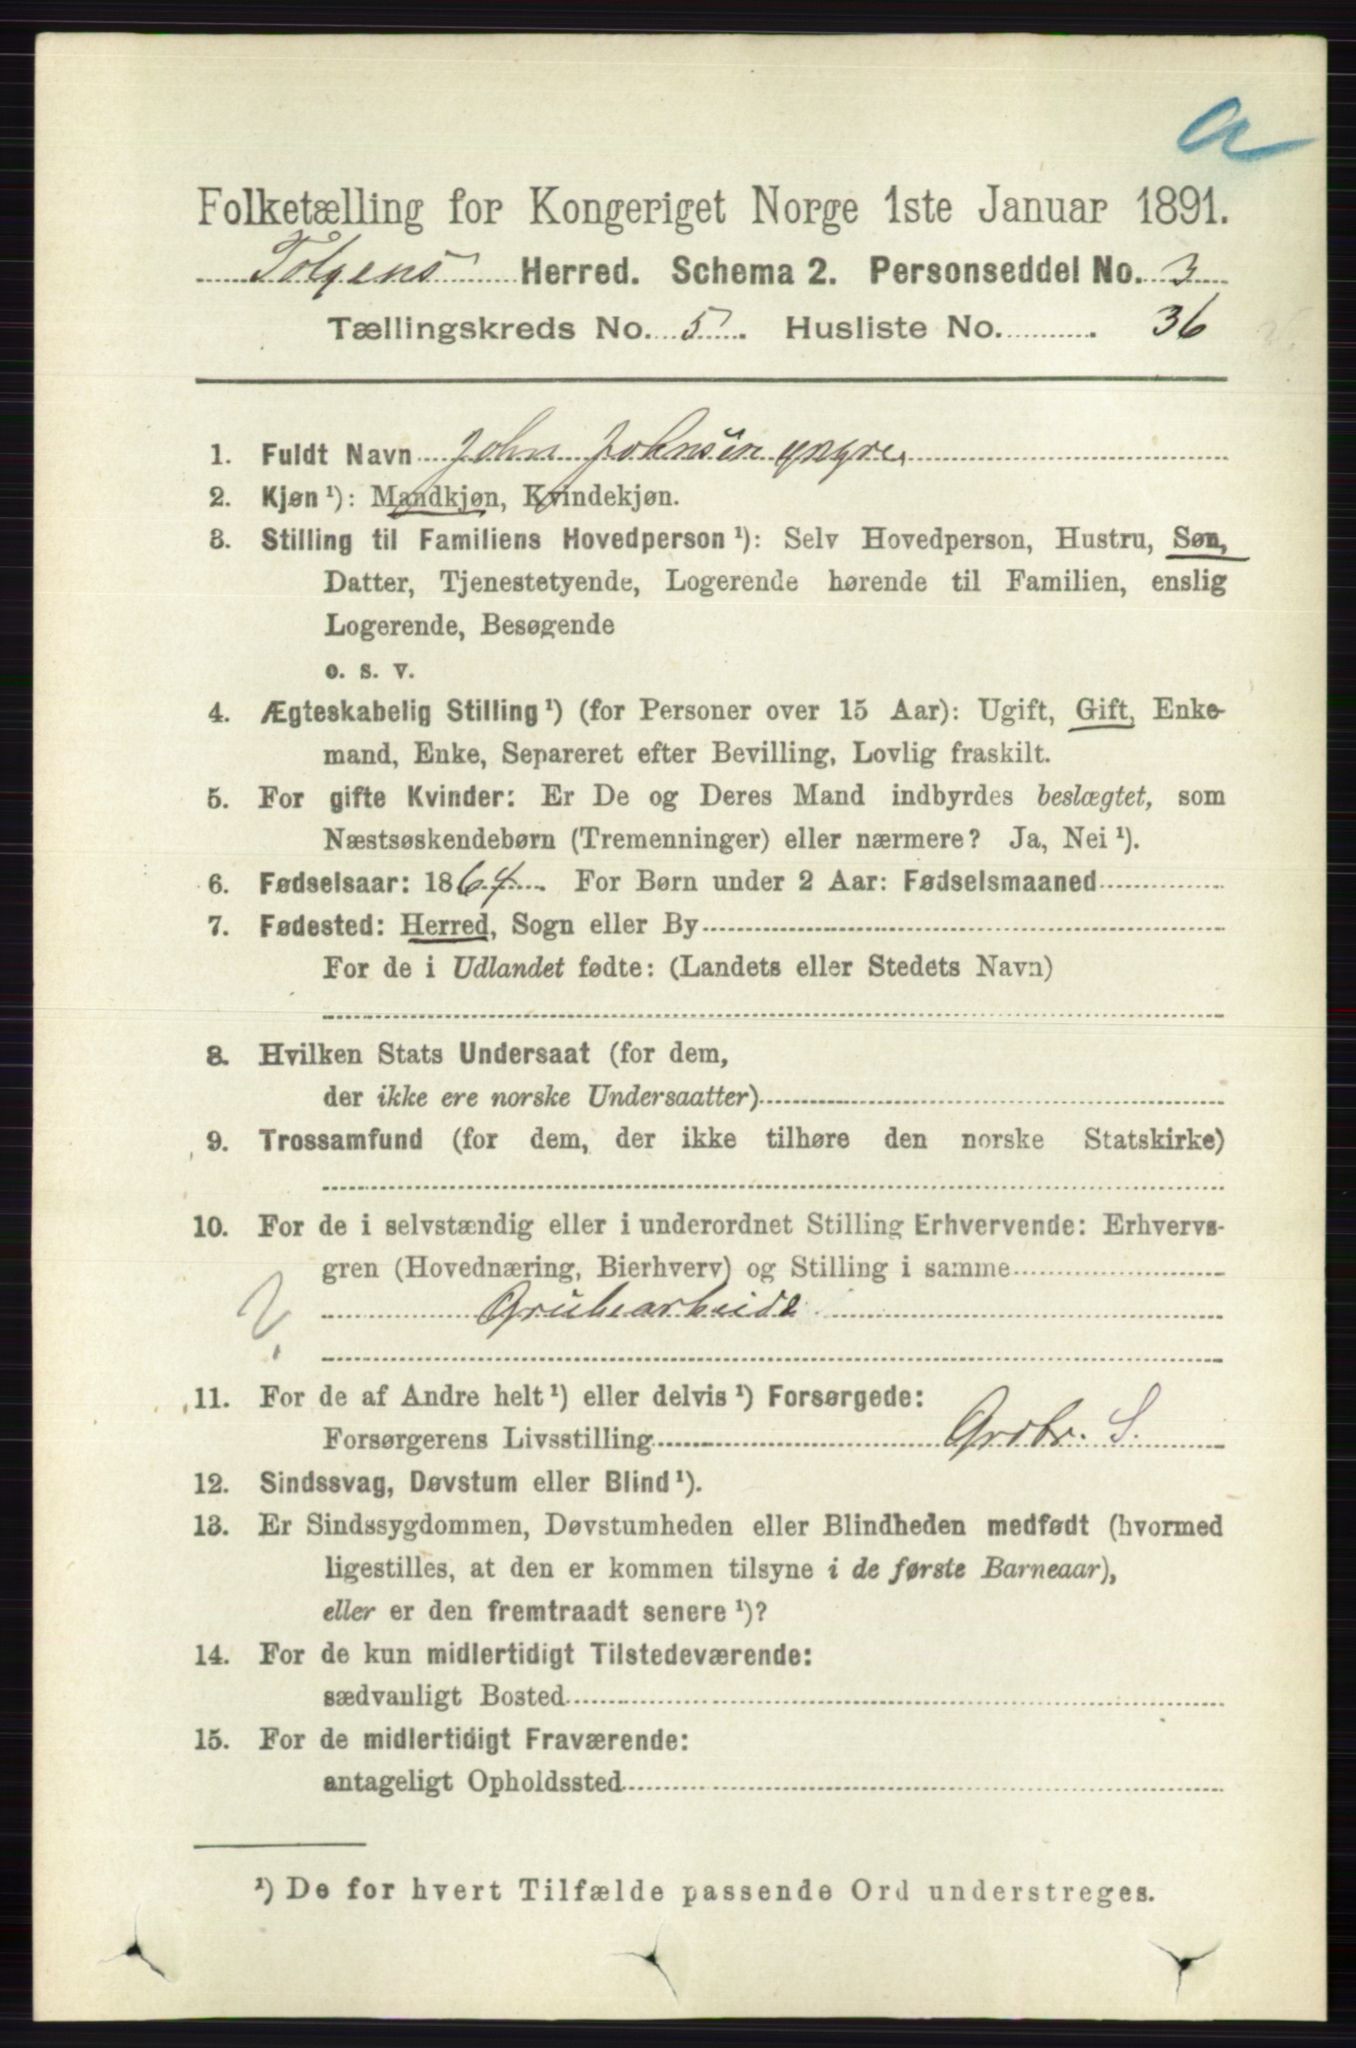 a
Folketælling for Kongeriget Norge 1ste Januar 1891.
Tolgens Herred. Schema 2. Personseddel No. 3
Tællingskreds No. 5. Husliste No. . 36
1. Fuldt Navn John Johnsen yngre
2. Kjøn ¹): Mandkjøn, Kvindekjøn.
3. Stilling til Familiens Hovedperson ¹): Selv Hovedperson, Hustru, Søn,
Datter, Tjenestetyende, Logerende hørende til Familien, enslig
Logerende, Besøgende
o. s. v.
4. Ægteskabelig Stilling ¹) (for Personer over 15 Aar): Ugift, Gift, Enke-
mand, Enke, Separeret efter Bevilling, Lovlig fraskilt.
5. For gifte Kvinder: Er De og Deres Mand indbyrdes beslægtet, som
Næstsøskendebørn (Tremenninger) eller nærmere? Ja, Nei ¹).
6. Fødselsaar: 1864. For Børn under 2 Aar: Fødselsmaaned
7. Fødested: Herred, Sogn eller By
For de i Udlandet fødte: (Landets eller Stedets Navn)
8. Hvilken Stats Undersaat (for dem,
der ikke ere norske Undersaatter)
9. Trossamfund (for dem, der ikke tilhøre den norske Statskirke)
10. For de i selvstændig eller i underordnet Stilling Erhvervende: Erhvervs-
gren (Hovednæring, Bierhverv) og Stilling i samme
Grubearbeide
11. For de af Andre helt ¹) eller delvis ¹) Forsørgede:
Forsørgerens Livsstilling Grdbr. S.
12. Sindssvag, Døvstum eller Blind ¹).
13. Er Sindssygdommen, Døvstumheden eller Blindheden medfødt (hvormed
ligestilles, at den er kommen tilsyne i de første Barneaar),
eller er den fremtraadt senere ¹)?
14. For de kun midlertidigt Tilstedeværende:
sædvanligt Bosted
15. For de midlertidigt Fraværende:
antageligt Opholdssted
¹) De for hvert Tilfælde passende Ord understreges.